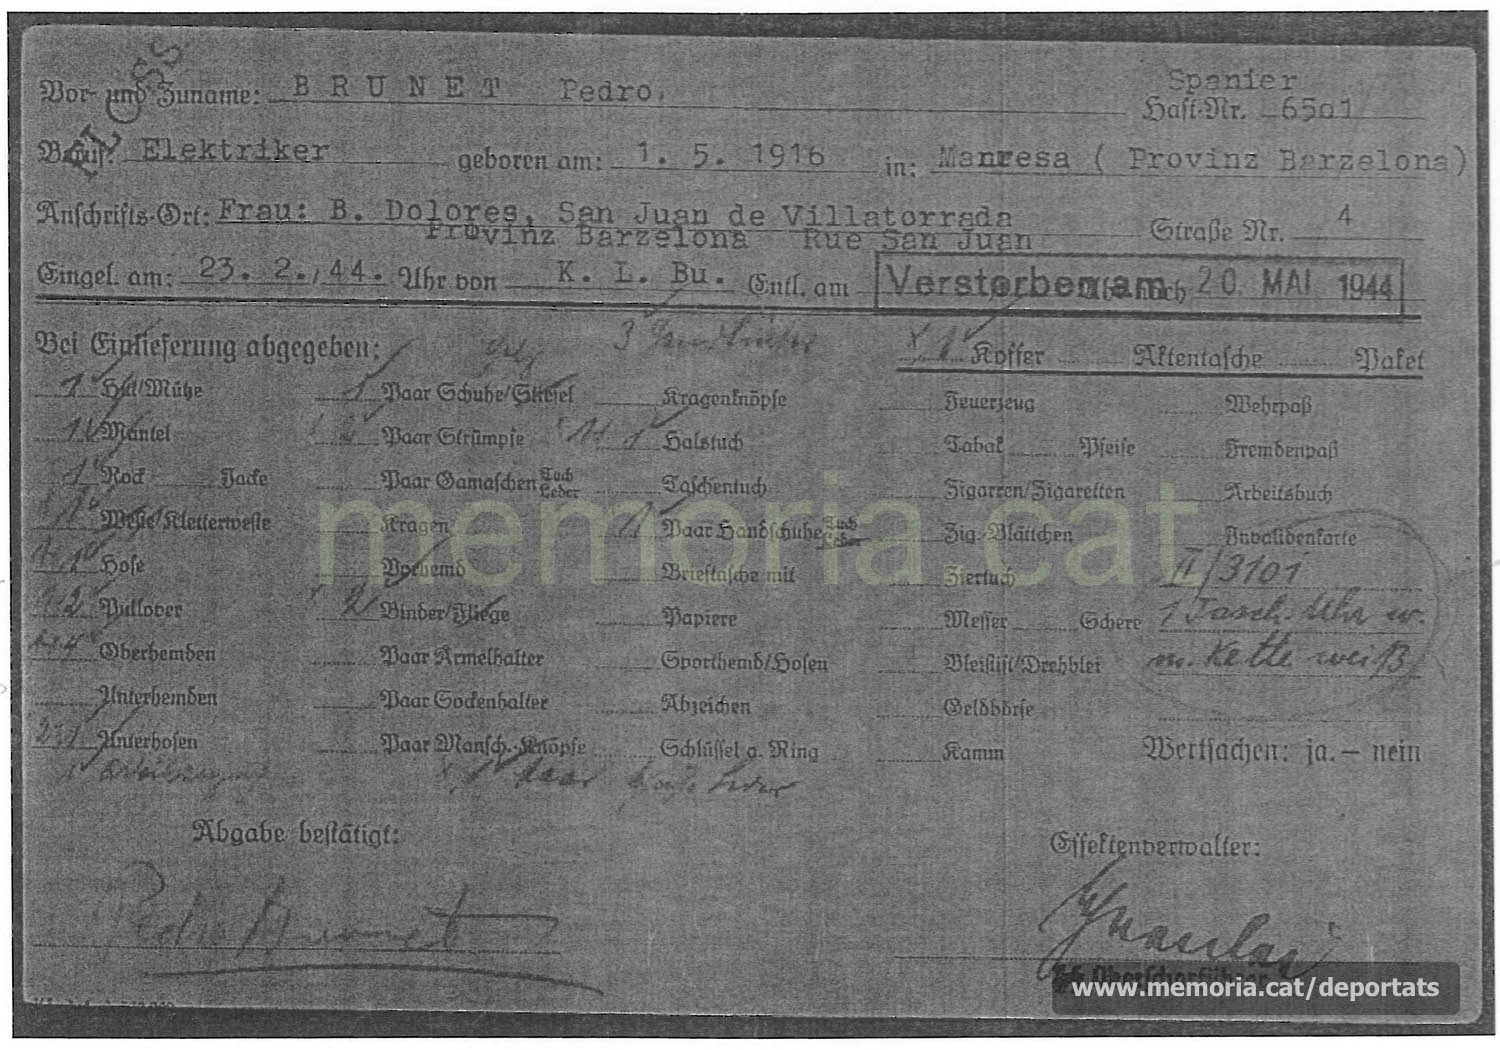 FLOSS
Vor- und Zuname: BRUNET Pedro. Spanier
Haft-Nr. 6501
Beruf: Elektriker geboren am: 1. 5. 1916 in: Manresa ( Provinz Barzelona)
Anschrifts-Ort: Frau: B. Dolores, San Juan de Villatorrada
Provinz Barzelona Rue San Juan Straße Nr. 4
Eingel. am: 23. 2. 44. Uhr von K. L. Bu. Entl. am Verstorben am 20. MAI 1944
Bei Einlieferung abgegeben: 3 1 Koffer Aktentasche Paket
1 Hut/Mütze 1 Paar Schuhe/Stiefel Kragenknöpfe Feuerzeug Wehrpaß
1 Mantel 2 Paar Strümpfe 1 Halstuch Tabak Pfeife Fremdenpaß
1 Rock Jacke Paar Gamaschen Tuch Leder Taschentuch Zigarren/Zigaretten Arbeitsbuch
1 Weste/Kletterweste Kragen 1 Paar Handschuhe Tuch Leder Zig.-Blättchen Invalidenkarte
1 Hose Vorhemd Brieftasche mit Ziertuch II/3101
2 Pullover 2 Binder/Fliege Papiere Messer Schere 1 Tasch. Uhr w.
4 Oberhemden Paar Ärmelhalter Sporthemd/Hosen Bleistift/Drehblei m. Kette weiß
Unterhemden Paar Sockenhalter Abzeichen Geldbörse
Unterhosen Paar Mansch.-Knöpfe Schlüssel a. Ring Kamm Wertsachen: ja. – nein
1 Paar
Abgabe bestätigt: Effektenverwalter:
Pedro Brunet
SS Oberscharführer
memoria.cat
www.memoria.cat/deportats